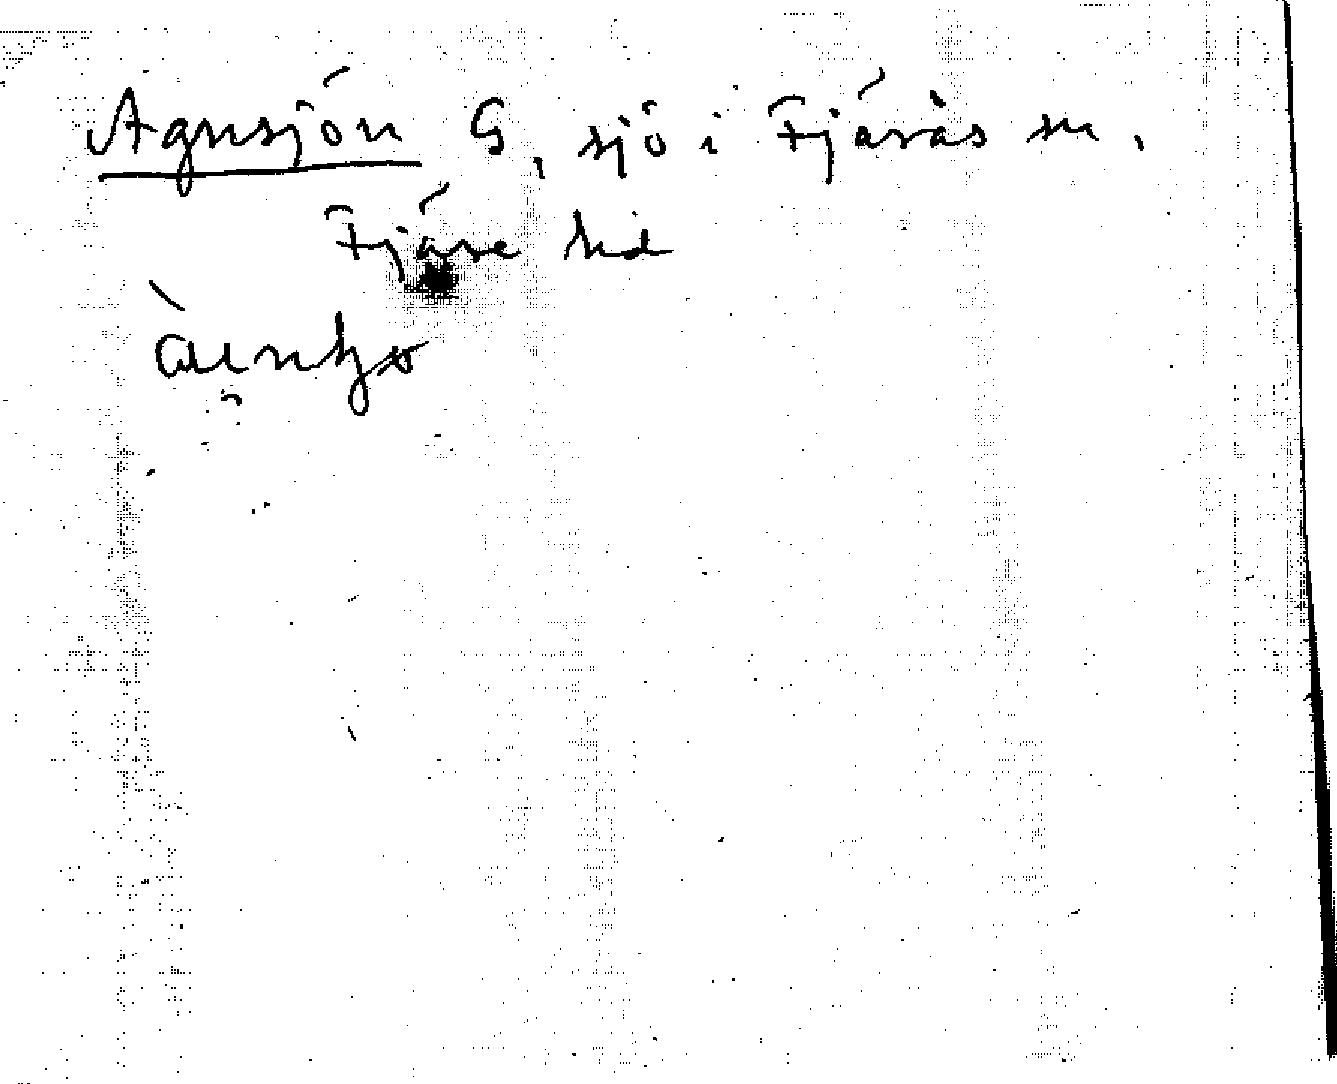 Agnsjön G, sjö i Fjärås sn.
Fjäre hd